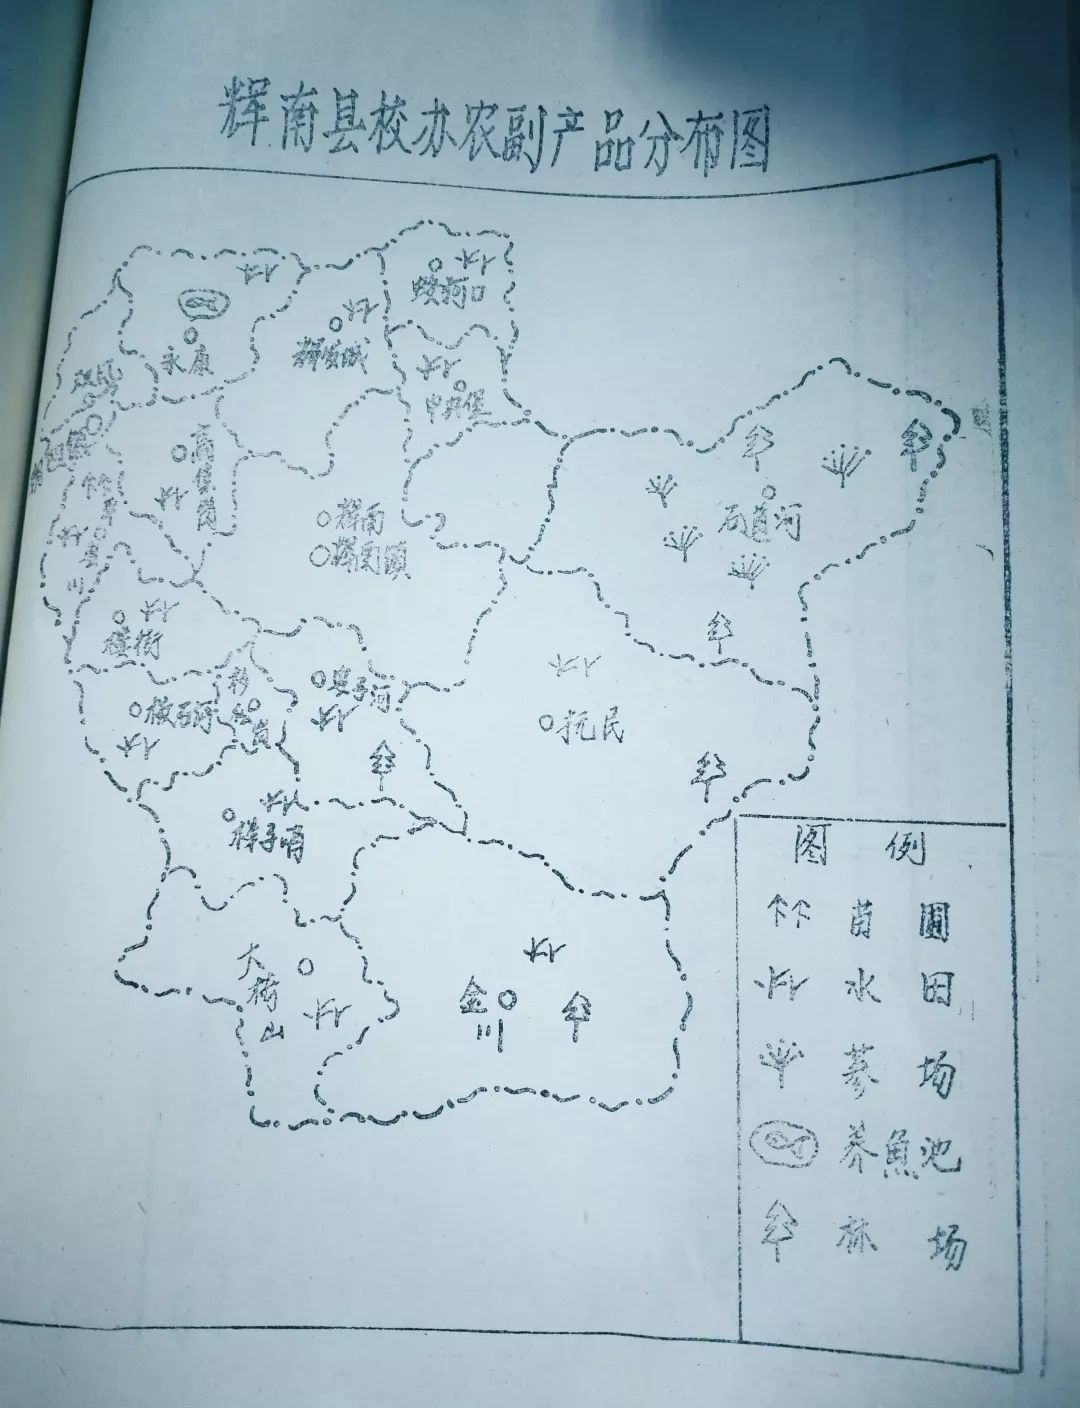 辉南县校办农副产品分布图
蛟河口
辉发城
永康
中央堡
高集岗
辉南
辉南镇
石道河
横街
楼子河
杉松岗
板石河
抚民
样子哨
大椅山
金川
图例
苗圃
水田
蓡场
养鱼池
林场